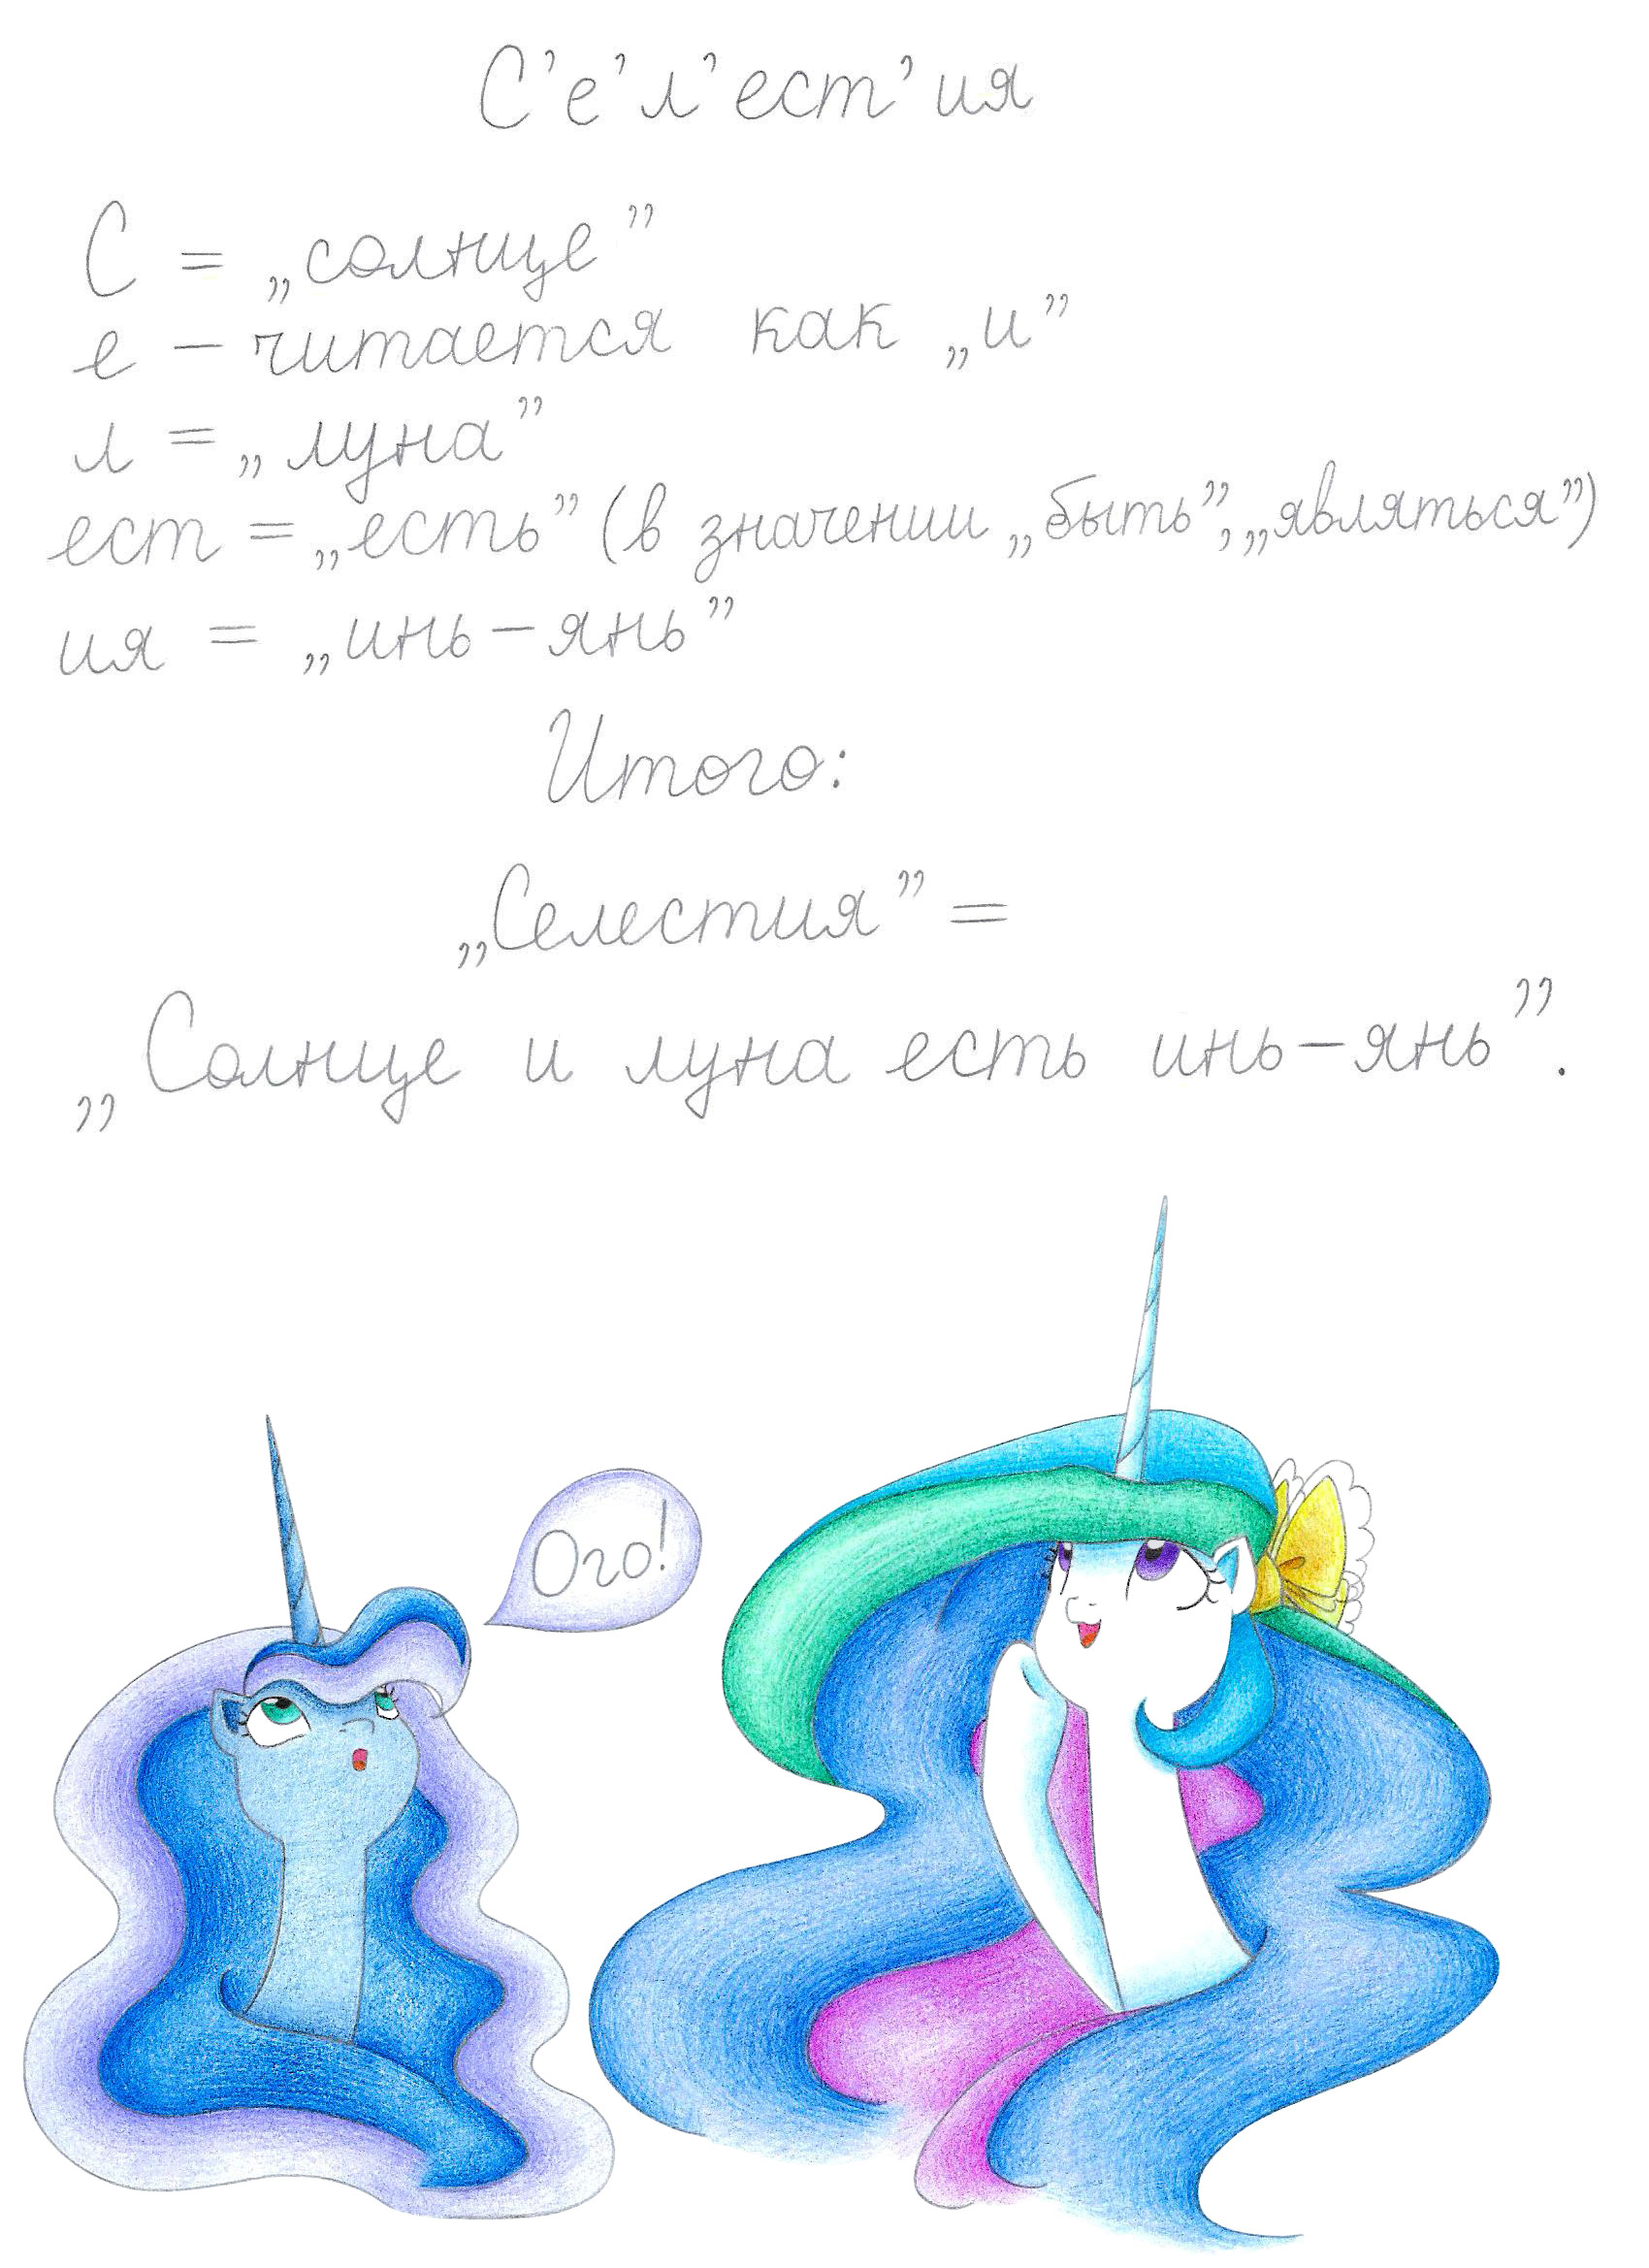 С'е'л'ест'ия
С = „солнце”
е – читается как „и”
л = „луна”
ест = „есть” (в значении „быть”, „являться”)
ия = „инь–янь”
Итого:
„Селестия” =
„Солнце и луна есть инь–янь”.
Ого!